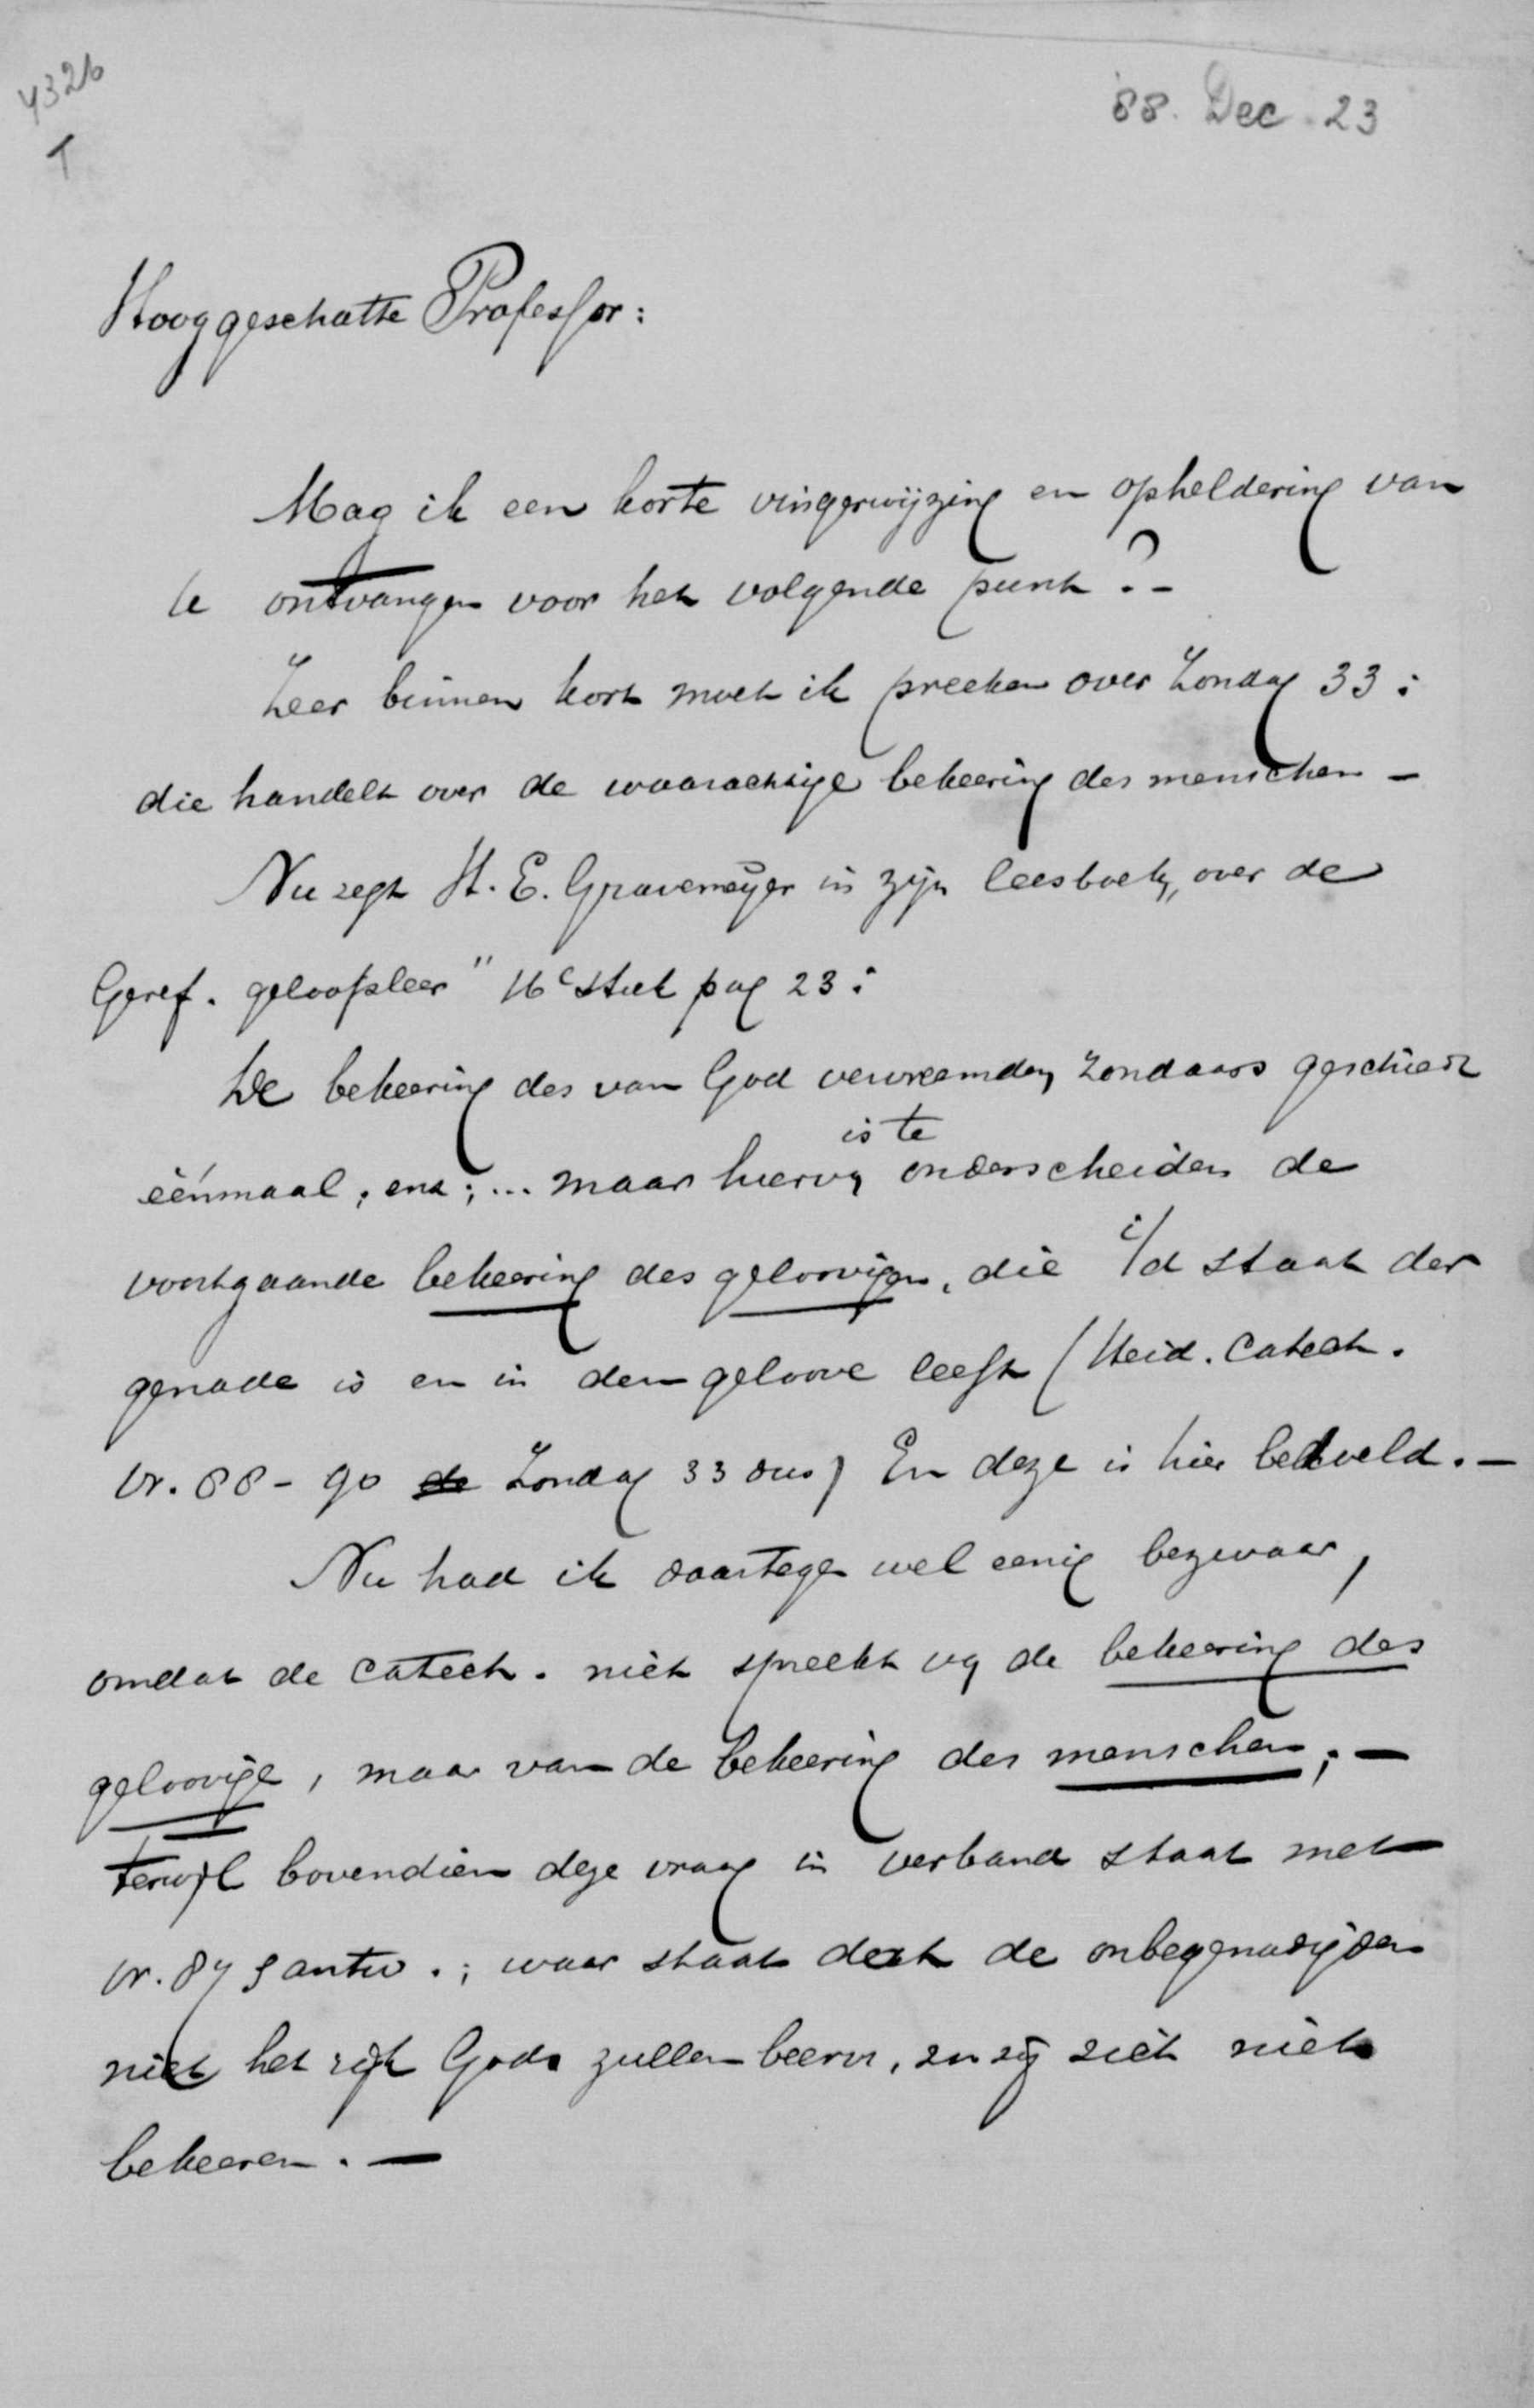 4326
T
88. Dec. 23
Hooggeschatte Professor:
Mag ik een korte vingerwijzing en opheldering van
U ontvangen voor het volgende punt? -
Zeer binnen kort moet ik preeken over Zondag 33:
die handelt over de waarachtige bekeering des menschen -
Nu zegt H. E. Gravemeyer in zijn leesboek „over de
Geref. geloofsleer" 16e stuk pag 23:
De bekeering des van God vervreemden zondaars geschiedt
éénmaal, enz; ... maar hierv. is te onderscheiden de
voortgaande bekeering des geloovigen, die i/d staat der
genade is en in den geloove leeft (Heid. Catech.
vr. 88 - 90 de Zondag 33 dus) En deze is hier bedoeld. -
Nu had ik daartegen wel eenig bezwaar,
omdat de catech. niet spreekt v. de bekeering des
geloovige, maar van de bekeering des menschen; -
terwijl bovendien deze vraag in verband staat met
vr. 87 & antw.; waar staat dat de onbegenadigden
niet het rijk Gods zullen beerv., zoo zij zich niet
bekeeren. -